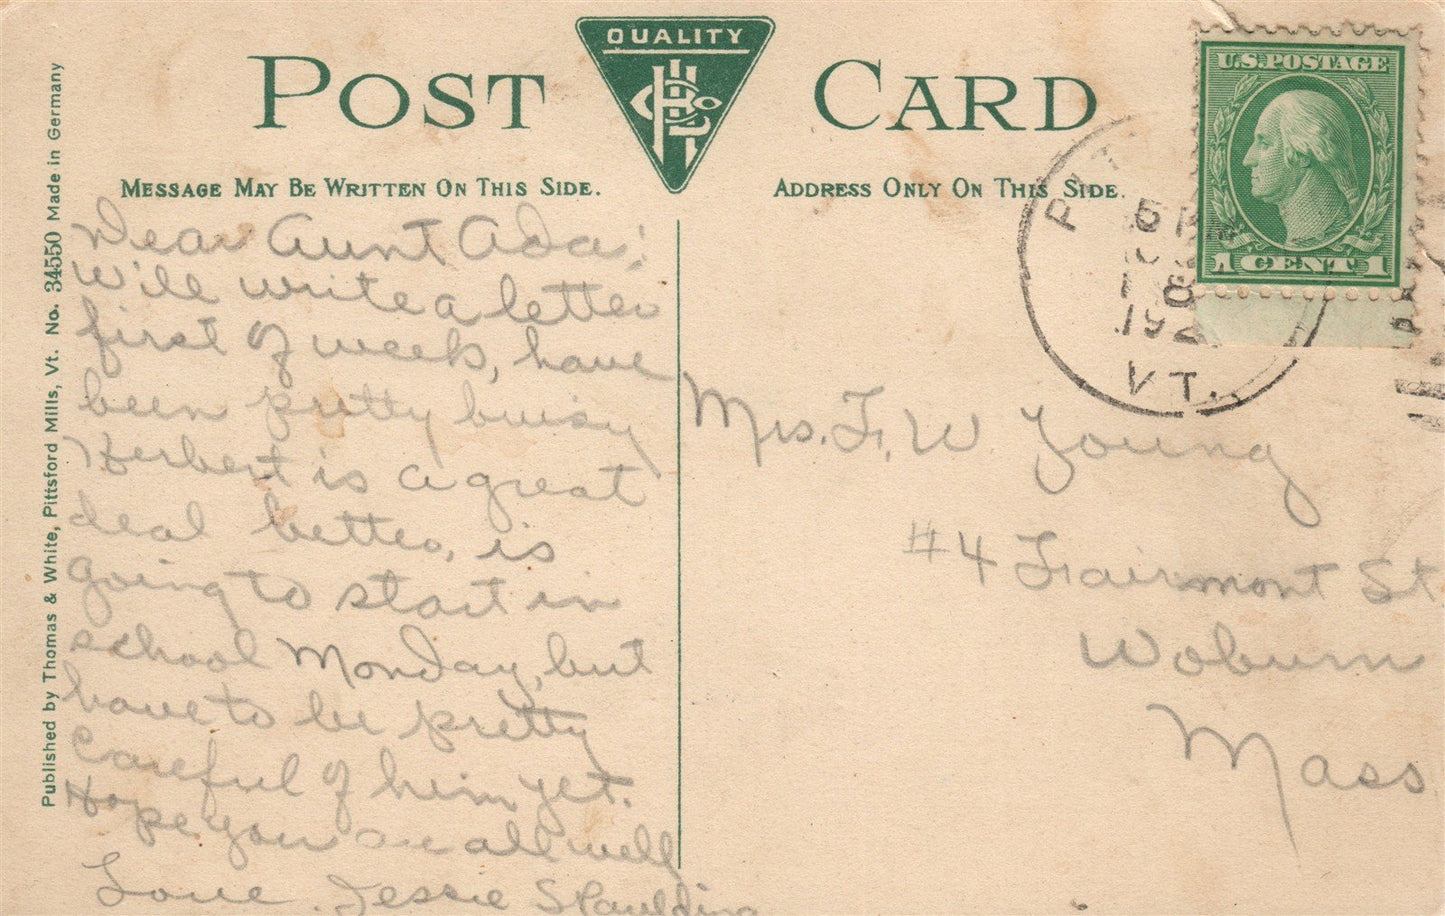 POST CARD
QUALITY
MESSAGE MAY BE WRITTEN ON THIS SIDE.
ADDRESS ONLY ON THIS SIDE.
U.S. POSTAGE
1 CENT 1
VT.
Published by Thomas & White, Pittsford Mills, Vt. No. 34550 Made in Germany
Dear Aunt Ada:
Will write a letter
first of week, have
been pretty buisy
Herbert is a great
deal better, is
going to start in
school Monday, but
have to be pretty
careful of him yet.
Hope you are all well
Love. Jessie Spaulding
Mrs. F. W Young
#4 Fairmont St
Woburn
Mass